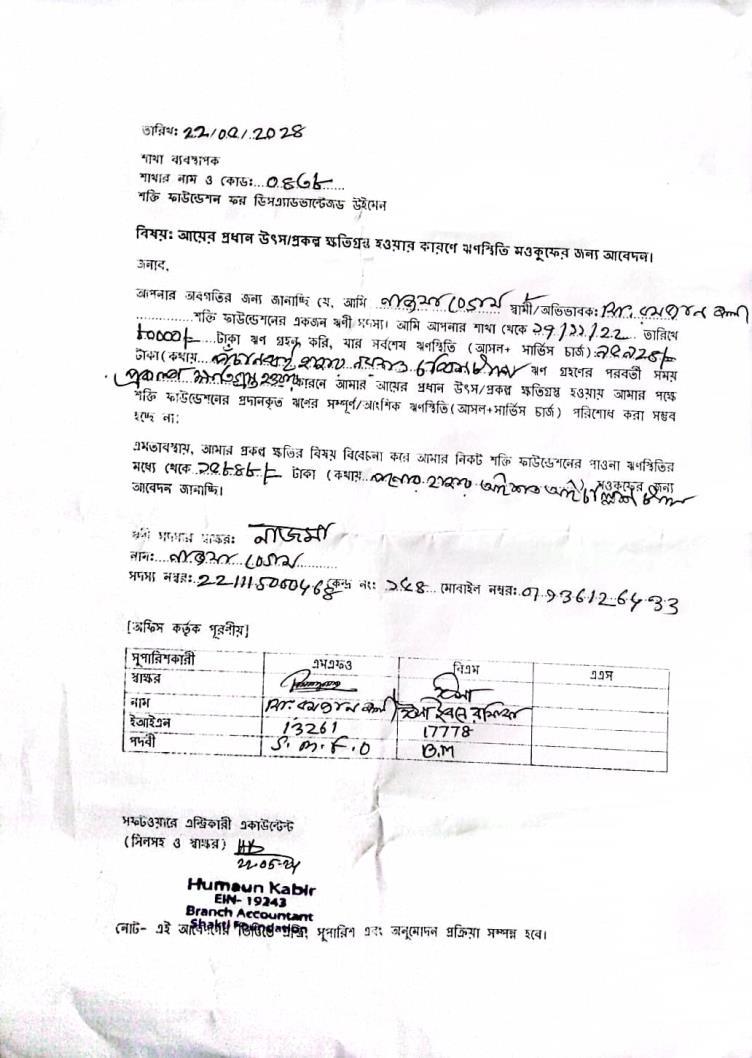 তারিখ: 22/0২/2028
শাখা ব্যবস্থাপক
শাখার নাম ও কোড:...
শক্তি ফাউন্ডেশন ফর ডিসএ্যাডভান্টেজড উইমেন
বিষয়: আয়ের প্রধান উৎস/প্রকল্প ক্ষতিগ্রস্ত হওয়ার কারণে ঋণস্থিতি মওকুফের জন্য আবেদন।
জনাব,
আপনার অবগতির জন্য জানাচ্ছি যে, আমি নাজমা বেগম স্বামী/অভিভাবক:
শক্তি ফাউন্ডেশনের একজন ঋণী সদস্য। আমি আপনার শাখা থেকে ২৭/১১/২২ তারিখে
৮0000/- টাকা ঋণ গ্রহন করি, যার সর্বশেষ ঋণস্থিতি (আসল+ সার্ভিস চার্জ)
টাকা (কথায়... হাজার নয়শত চব্বিশ টাকা ঋণ গ্রহণের পরবর্তী সময়
প্রকল্প ক্ষতিগ্রস্ত হওয়ার কারনে আমার আয়ের প্রধান উৎস/প্রকল্প ক্ষতিগ্রস্ত হওয়ায় আমার পক্ষে
শক্তি ফাউন্ডেশনের প্রদানকৃত ঋণের সম্পূর্ণ/আংশিক ঋণস্থিতি (আসল+সার্ভিস চার্জ) পরিশোধ করা সম্ভব
হচ্ছে না।
এমতাবস্থায়, আমার প্রকল্প ক্ষতির বিষয় বিবেচনা করে আমার নিকট শক্তি ফাউন্ডেশনের পাওনা ঋণস্থিতির
মধ্যে থেকে টাকা (কথায়... হাজার টাকা মওকুফের জন্য
আবেদন জানাচ্ছি।
ঋণী সদস্যের স্বাক্ষর: নাজমা
নাম: নাজমা বেগম
সদস্য নম্বর: কেন্দ্র নং: মোবাইল নম্বর: 01936126433
[অফিস কর্তৃক পূরণীয়]
সুপারিশকারী এমএফও বিএম এএস
স্বাক্ষর
নাম
ইআইএন 13261 17778
পদবী S.M.F.O B.M
সফটওয়ারে এন্ট্রিকারী একাউন্টেন্ট
(সিলসহ ও স্বাক্ষর)
22-05-24
Humaun Kabir
EIN- 19243
Branch Accountant
Shakti Foundation
নোট- এই আবেদনের ভিত্তিতে এন্ট্রি, সুপারিশ এবং অনুমোদন প্রক্রিয়া সম্পন্ন হবে।